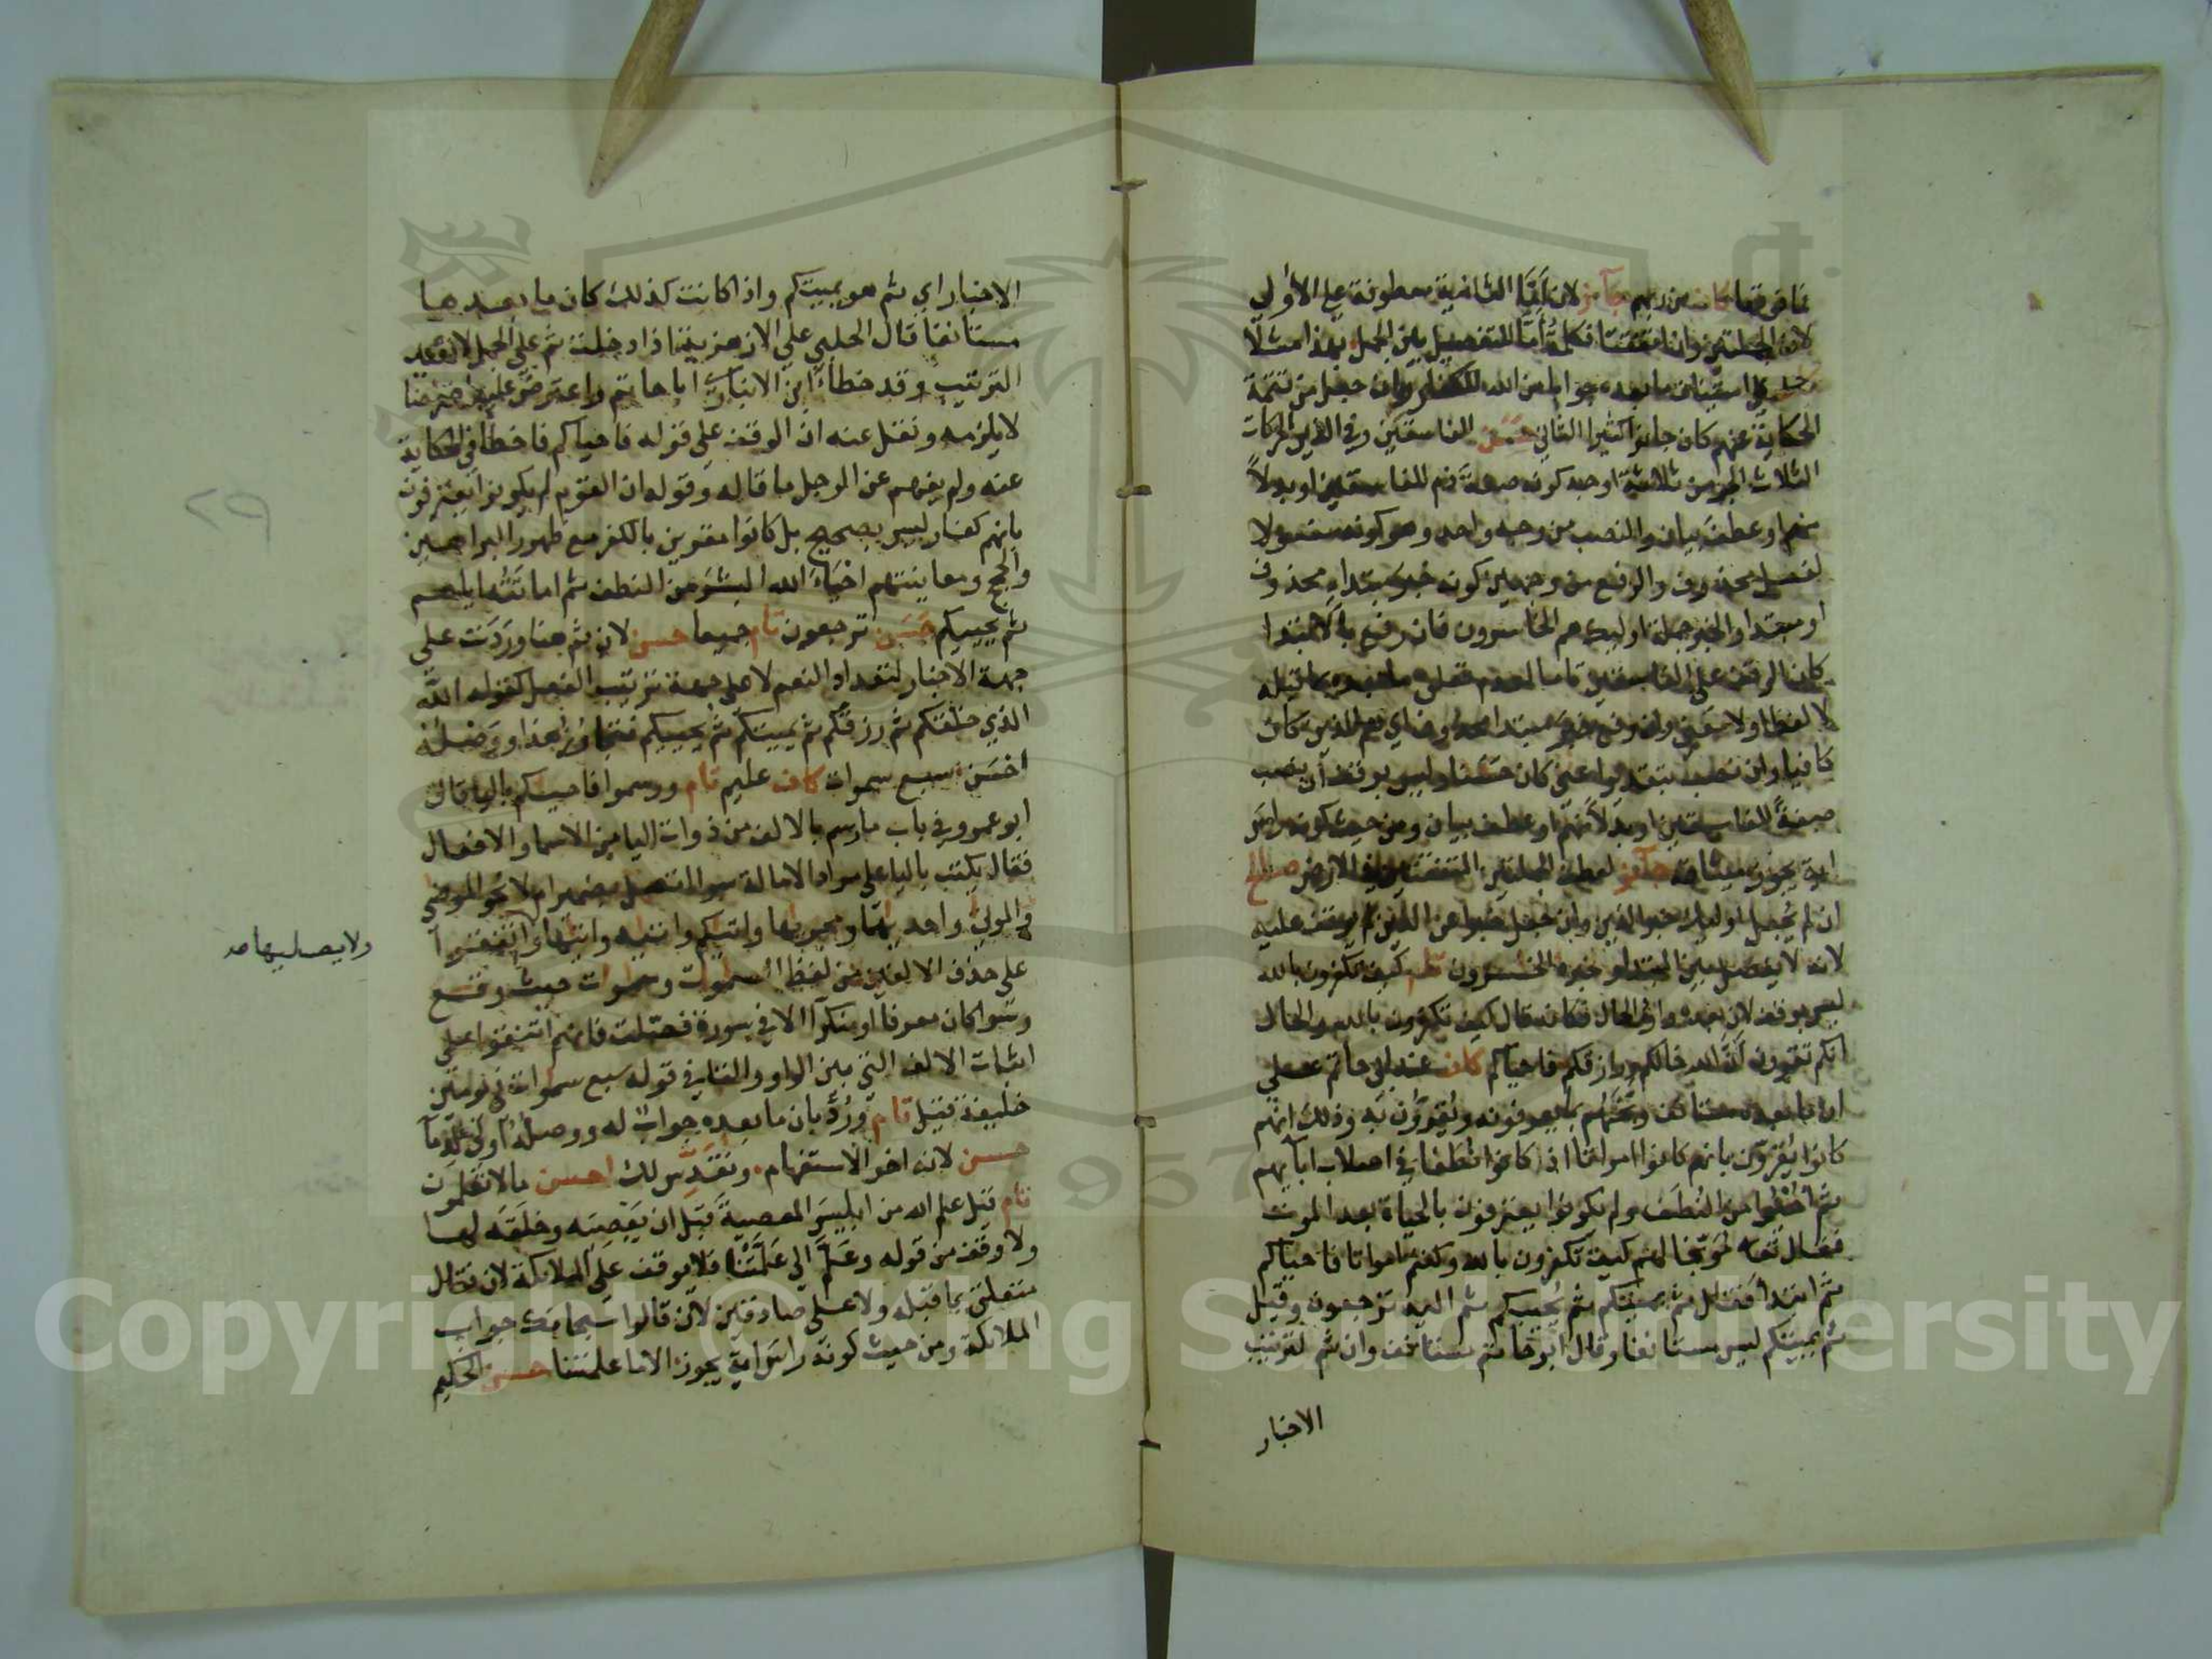 فما فوقها كاف من ربهم جائز لان أمّا الثانية معطوفة على الاولى
لان الجملتين وان اتفقتا فكلمة أمّا للتفصيل بين الجمل بهذا مثلا
على استئناف ما بعده جوابا من الله للكفار وان جعل من تتمة
الحكاية عنهم كان جائزا كثيرا الثاني حسن الفاسقين في الذين الحركات
الثلاث الجر من ثلاثة اوجه كونه صفة ذم للفاسقين او بدلا
منهم او عطف بيان والنصب من وجه واحد وهو كونه مفعولا
لفعل محذوف والرفع من وجهين كونه خبر مبتدا محذوف
او مبتدا والخبر جملة اوليك هم الخاسرون فان رفع بالابتدا
كان الوقف على الفاسقين تاما لعدم تعلق ما بعده بما قبله
لا لفظا ولا معنى وان رفع خبر مبتدا محذوف اي هم الذين كان
كافيا وان نصب بتقدير اعني كان حسنا وليس بوقف ان نصب
صفة للفاسقين او بدلا منهم او عطف بيان ومن حيث كونه راس
اية يجوز ميثاقه جائز لعطف الجملتين المتفقتين في الارض صالح
ان لم يجعل اوليك خبر الذين وان جعل خبرا عن الذين لم يوقف عليه
لانه لا يفصل بين المبتدا وخبره الخاسرون تام كيف تكفرون بالله
ليس بوقف لان بعده واو الحال فكانه قال كيف تكفرون بالله والحال
انكم تقرون ان الله خالقكم ورازقكم فاحياكم كاف عند ابي حاتم على
ان ما بعده مستانف وبّخهم بما يعرفونه ويقرون به وذلك انهم
كانوا يقرون بانهم كانوا امواتا اذ كانوا نطفا في اصلاب ابايهم
ثم احيوا من النطف ولم يكونوا يعترفون بالحياة بعد الموت
فقال تعالى موبخا لهم كيف تكفرون بالله وكنتم امواتا فاحياكم
ثم ابتدا فقال ثم يميتكم ثم يحييكم ثم اليه ترجعون وقيل
ثم يميتكم ليس مستانفا وقال ابو حاتم مستانف وان ثم لترتيب
الاخبار
الاخبار اي ثم هو يميتكم واذا كانت كذلك كان ما بعدها
مستانفا قال الحلبي على الازهرية اذا دخلت ثم على الجمل لا تفيد
الترتيب وقد خطا ابن الانباري ابا حاتم واعترض عليه اعتراضا
لا يلزمه ونقل عنه ان الوقف على قوله فاحياكم فاخطا في الحكاية
عنه ولم يفهم عن الرجل ما قاله وقوله ان القوم لم يكونوا يعترفون
بانهم كفار ليس بصحيح بل كانوا مقرين بالكفر مع ظهور البراهين
والحجج ومعاينتهم احياء الله البشر من النطف ثم اماتته اياهم
ثم يحييكم حسن ترجعون تام جميعا حسن لان ثم هنا وردت على
جهة الاخبار لتعداد النعم لا على جهة ترتيب الفعل كقوله الله
الذي خلقكم ثم رزقكم ثم يميتكم ثم يحييكم فتجاوز هذا ووصله
احسن سبع سموات كاف عليم تام ورسموا فاحيكم باليا قال
ابو عمرو في باب ما رسم بالالف من ذوات اليا من الاسما والافعال
فقال يكتب باليا على مراد الامالة سوا اتصل بضمير ام لا نحو المرضى
والموتى واحديهما ومجريها واتيكم واتيه واتيها واتفقوا
ولا يصليها صح
على حذف الالفين من لفظ السموات وسموات حيث وقع
وسوا كان معرفا او منكرا الا في سورة فصلت فانهم اتفقوا على
اثبات الالف التي بين الواو والتا في قوله سبع سموات في يومين
خليفة قيل تام ورد بان ما بعده جواب له ووصله اولى الدما
حسن لانه اخر الاستفهام ونقدس لك احسن ما لا تعلمون
تام قيل علم الله من ابليس المعصية قبل ان يعصيه وخلقه لها
ولا وقف من قوله وعلم الى علمتنا فلا يوقف على الملائكة لان فقال
متعلق بما قبله ولا على صادقين لان قالوا سبحانك جواب
الملائكة ومن حيث كونه راس اية يجوز الا ما علمتنا حسن الحكيم
٢٩
Copyright © King Saud University
1957